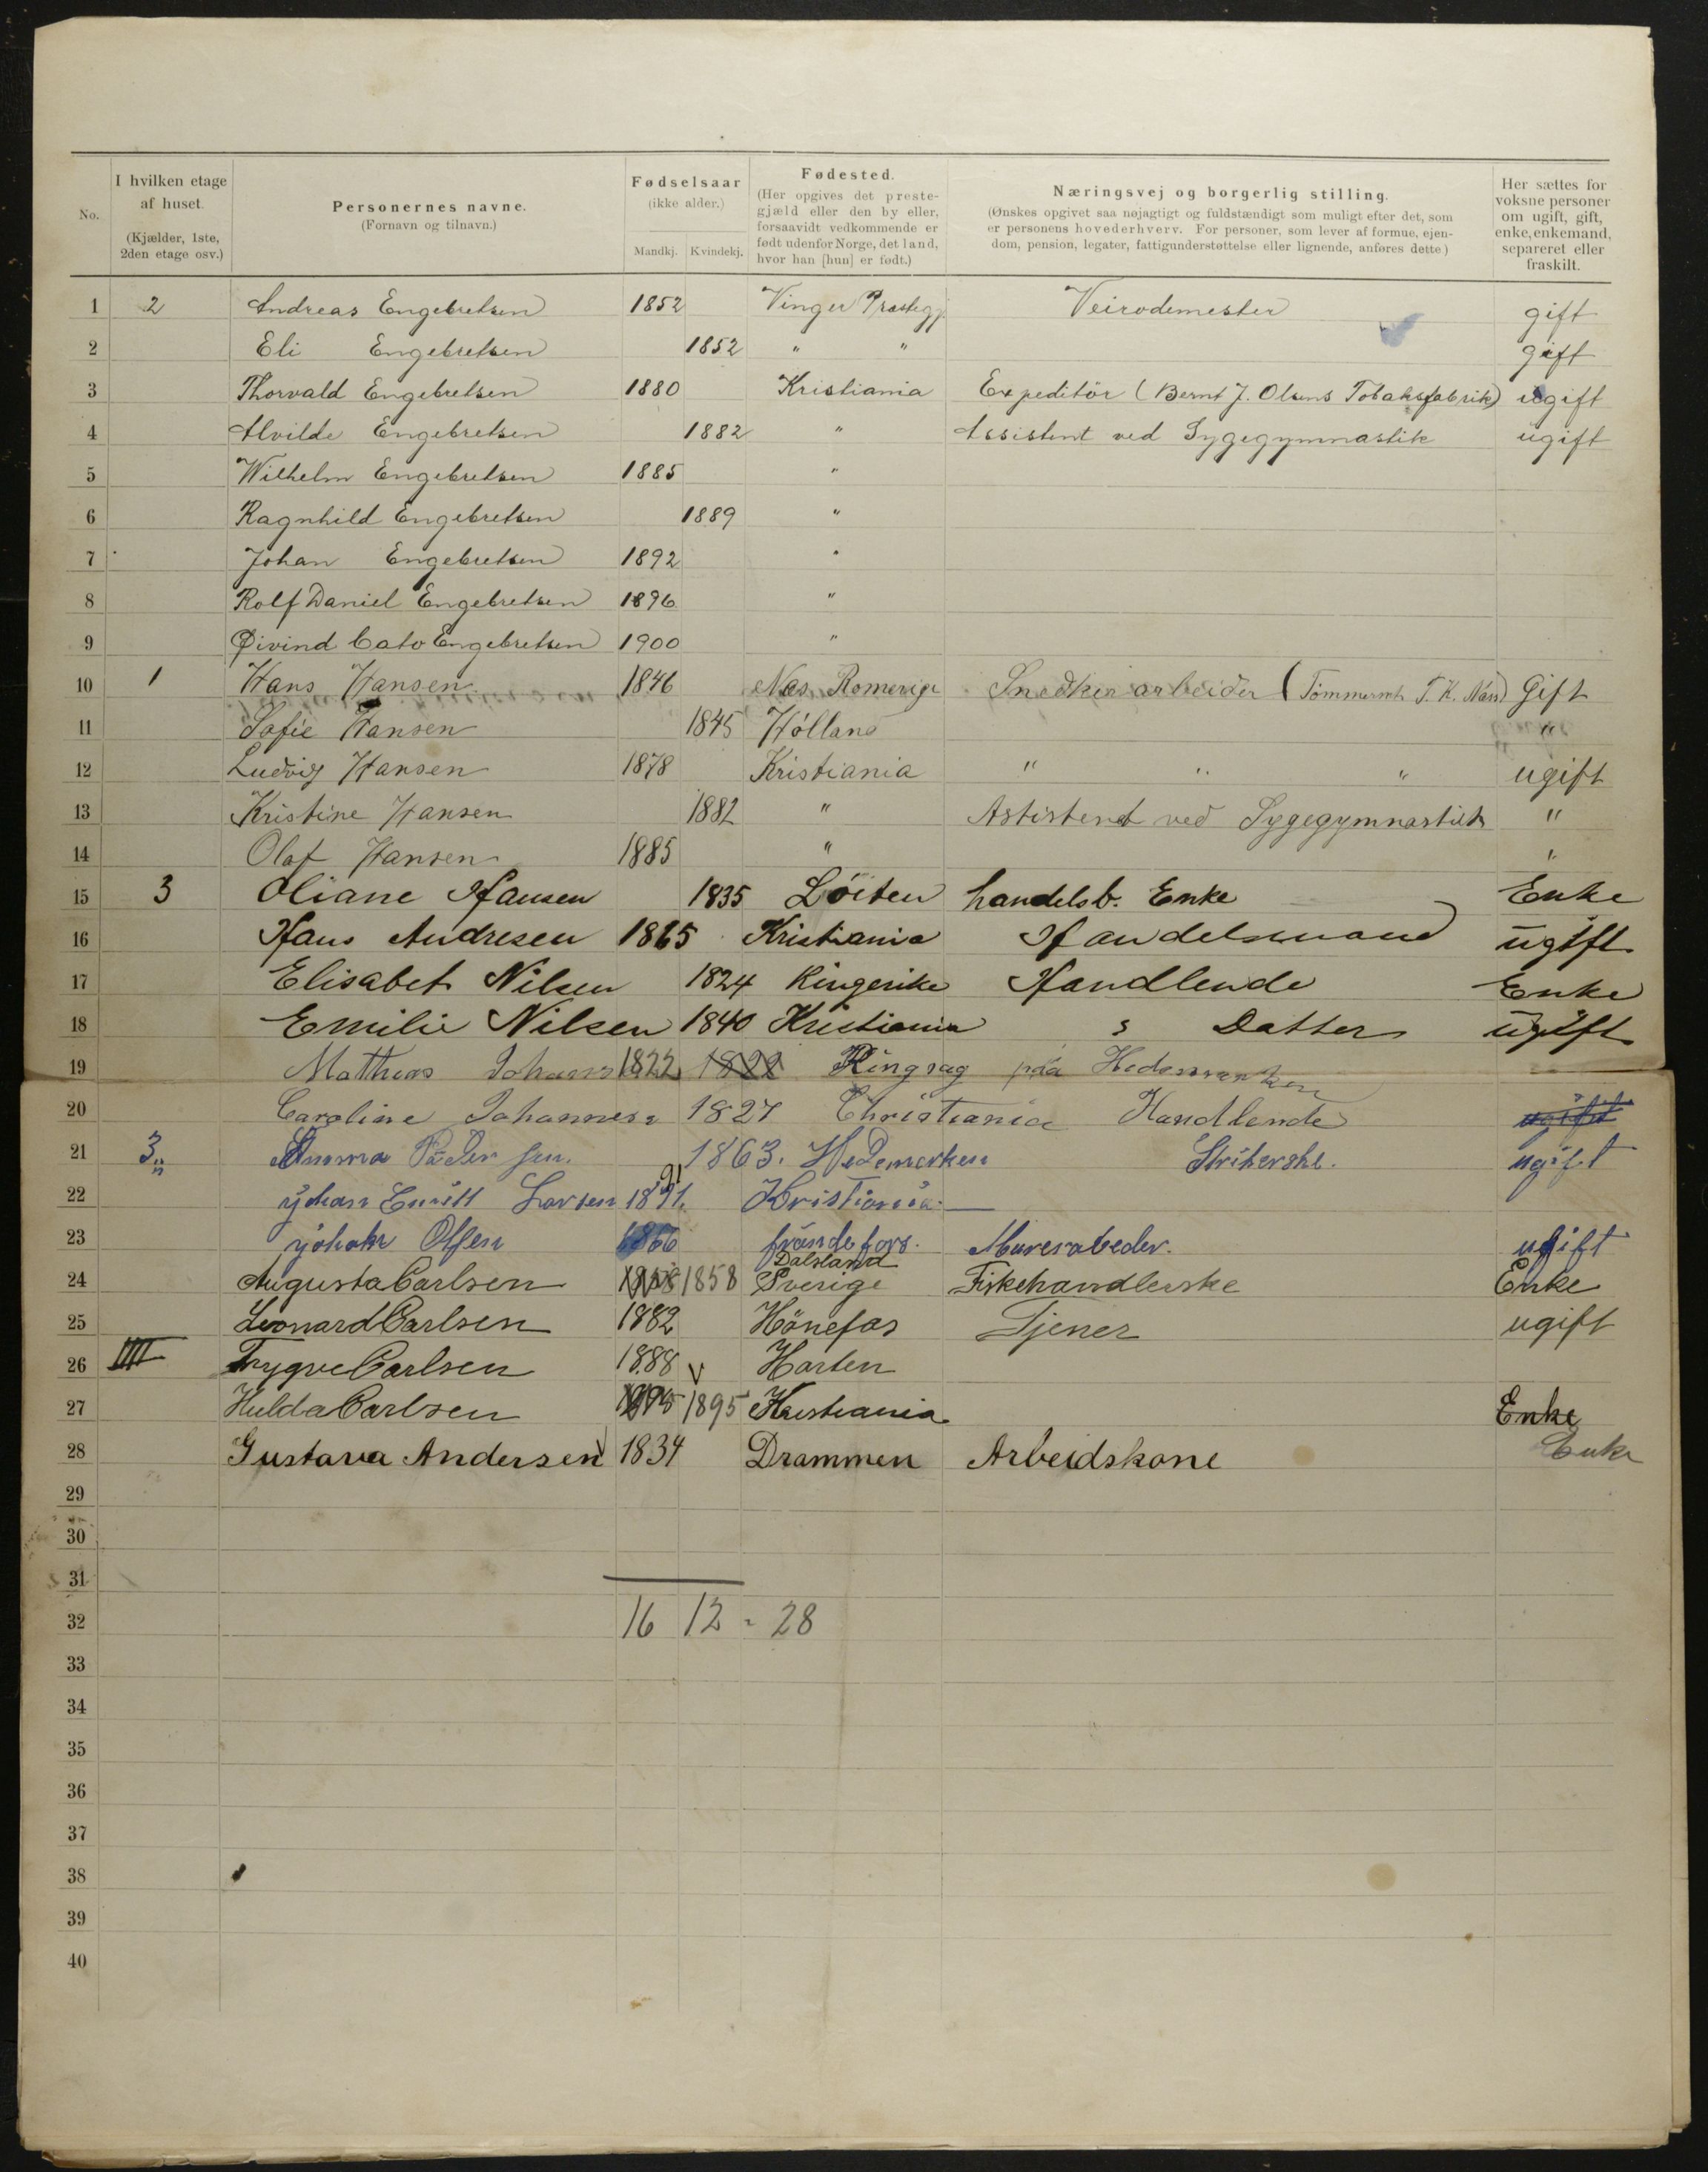 No.
I hvilken etage af huset. (Kjælder, 1ste, 2den etage osv.)
Personernes navne. (Fornavn og tilnavn.)
Fødselsaar (ikke alder.) Mandkj. Kvindekj.
Fødested. (Her opgives det prestegjæld eller den by eller, forsaavidt vedkommende er født udenfor Norge, det land, hvor han [hun] er født.)
Næringsvej og borgerlig stilling. (Ønskes opgivet saa nøjagtigt og fuldstændigt som muligt efter det, som er personens hovederhverv. For personer, som lever af formue, ejendom, pension, legater, fattigunderstøttelse eller lignende, anføres dette)
Her sættes for voksne personer om ugift, gift, enke, enkemand, separeret eller fraskilt.
1 2 Andreas Engebretsen 1852 Vinger Præstegj. Veirodemester gift
2 Eli Engebretsen 1852 " " gift
3 Thorvald Engebretsen 1880 Kristiania Expeditör (Bernt J. Olsens Tobaksfabrik) ugift
4 Alvilde Engebretsen 1882 " Assistent ved Sygegymnastik ugift
5 Wilhelm Engebretsen 1885 "
6 Ragnhild Engebretsen 1889 "
7 Johan Engebretsen 1892 "
8 Rolf Daniel Engebretsen 1896 "
9 Øivind Cato Engebretsen 1900 "
10 1 Hans Hansen 1846 Næs Romerige Snedker arbeider (Tömmerm. T. K. Næss) Gift
11 Sofie Hansen 1845 Hölland "
12 Ludvig Hansen 1878 Kristiania " " " ugift
13 Kristine Hansen 1882 " Astistend ved Sygegymnastik "
14 Olaf Hansen 1885 " "
15 3 Oliane Hansen 1835 Löiten handelsb. Enke Enke
16 Hans Andresen 1865 Kristiania Handelsmand ugift
17 Elisabet Nilsen 1824 Ringerike Handlende Enke
18 Emilie Nilsen 1840 Kristiania s Datter ugift
19 Mathias Johans 1822 1822 Ringsag paa Hedemarken
20 Caroline Johannesen 1827 Christiania Handlende ugift
21 3" Amma Pädersen. 1863. Hedemerken Strikershe. ugift
22 Johan Emill Larsen 1891. 91 Kristiania.
23 johohn Olsen 1866 frändefors. Murerabeder. ugift
24 Augusta Carlsen 1858 1858 Dalsland Sverige Fiskehandlerske Enke
25 Leonard Carlsen 1882 Hönefos Tjener ugift
26 IIII Trygve Carlsen 1888 v Horten
27 Hulda Carlsen 1895 1895 Kristiania Enke
28 Gustava Andersen 1834 Drammen Arbeidskone Enke
29
30
31
32 16 12 = 28
33
34
35
36
37
38
39
40